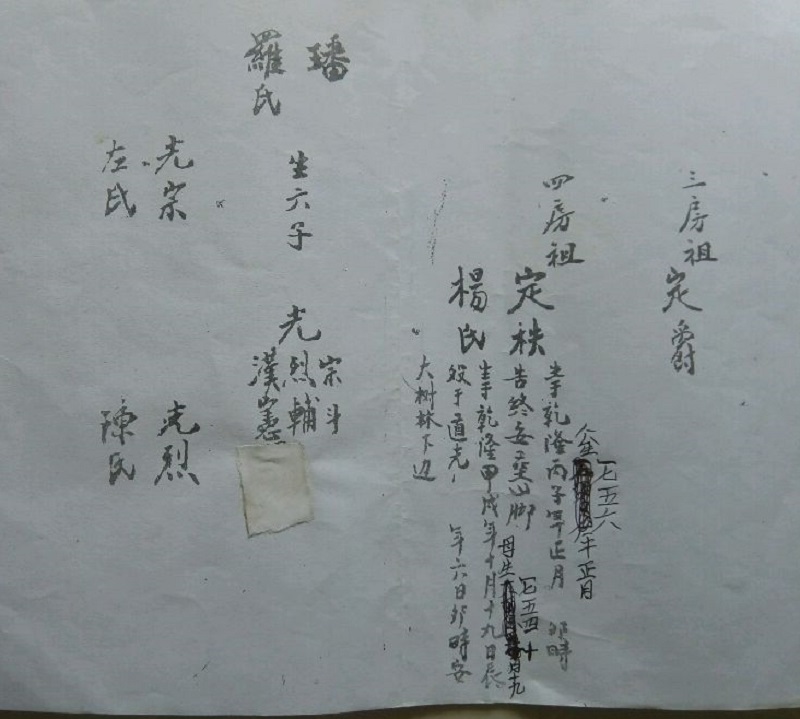 三房祖
定爵
四房祖
定秩
生于乾隆丙子年正月 卯時
公生一七五六年正月
告終安垄山脚
楊氏
生于乾隆甲戌年十月十九日辰
母生一七五四十月十九
殁于道光 年六日卯時安
大树林下边
璠
羅氏
生六子
光
宗斗
烈輔
漢憲
光宗
左氏
光烈
陳氏